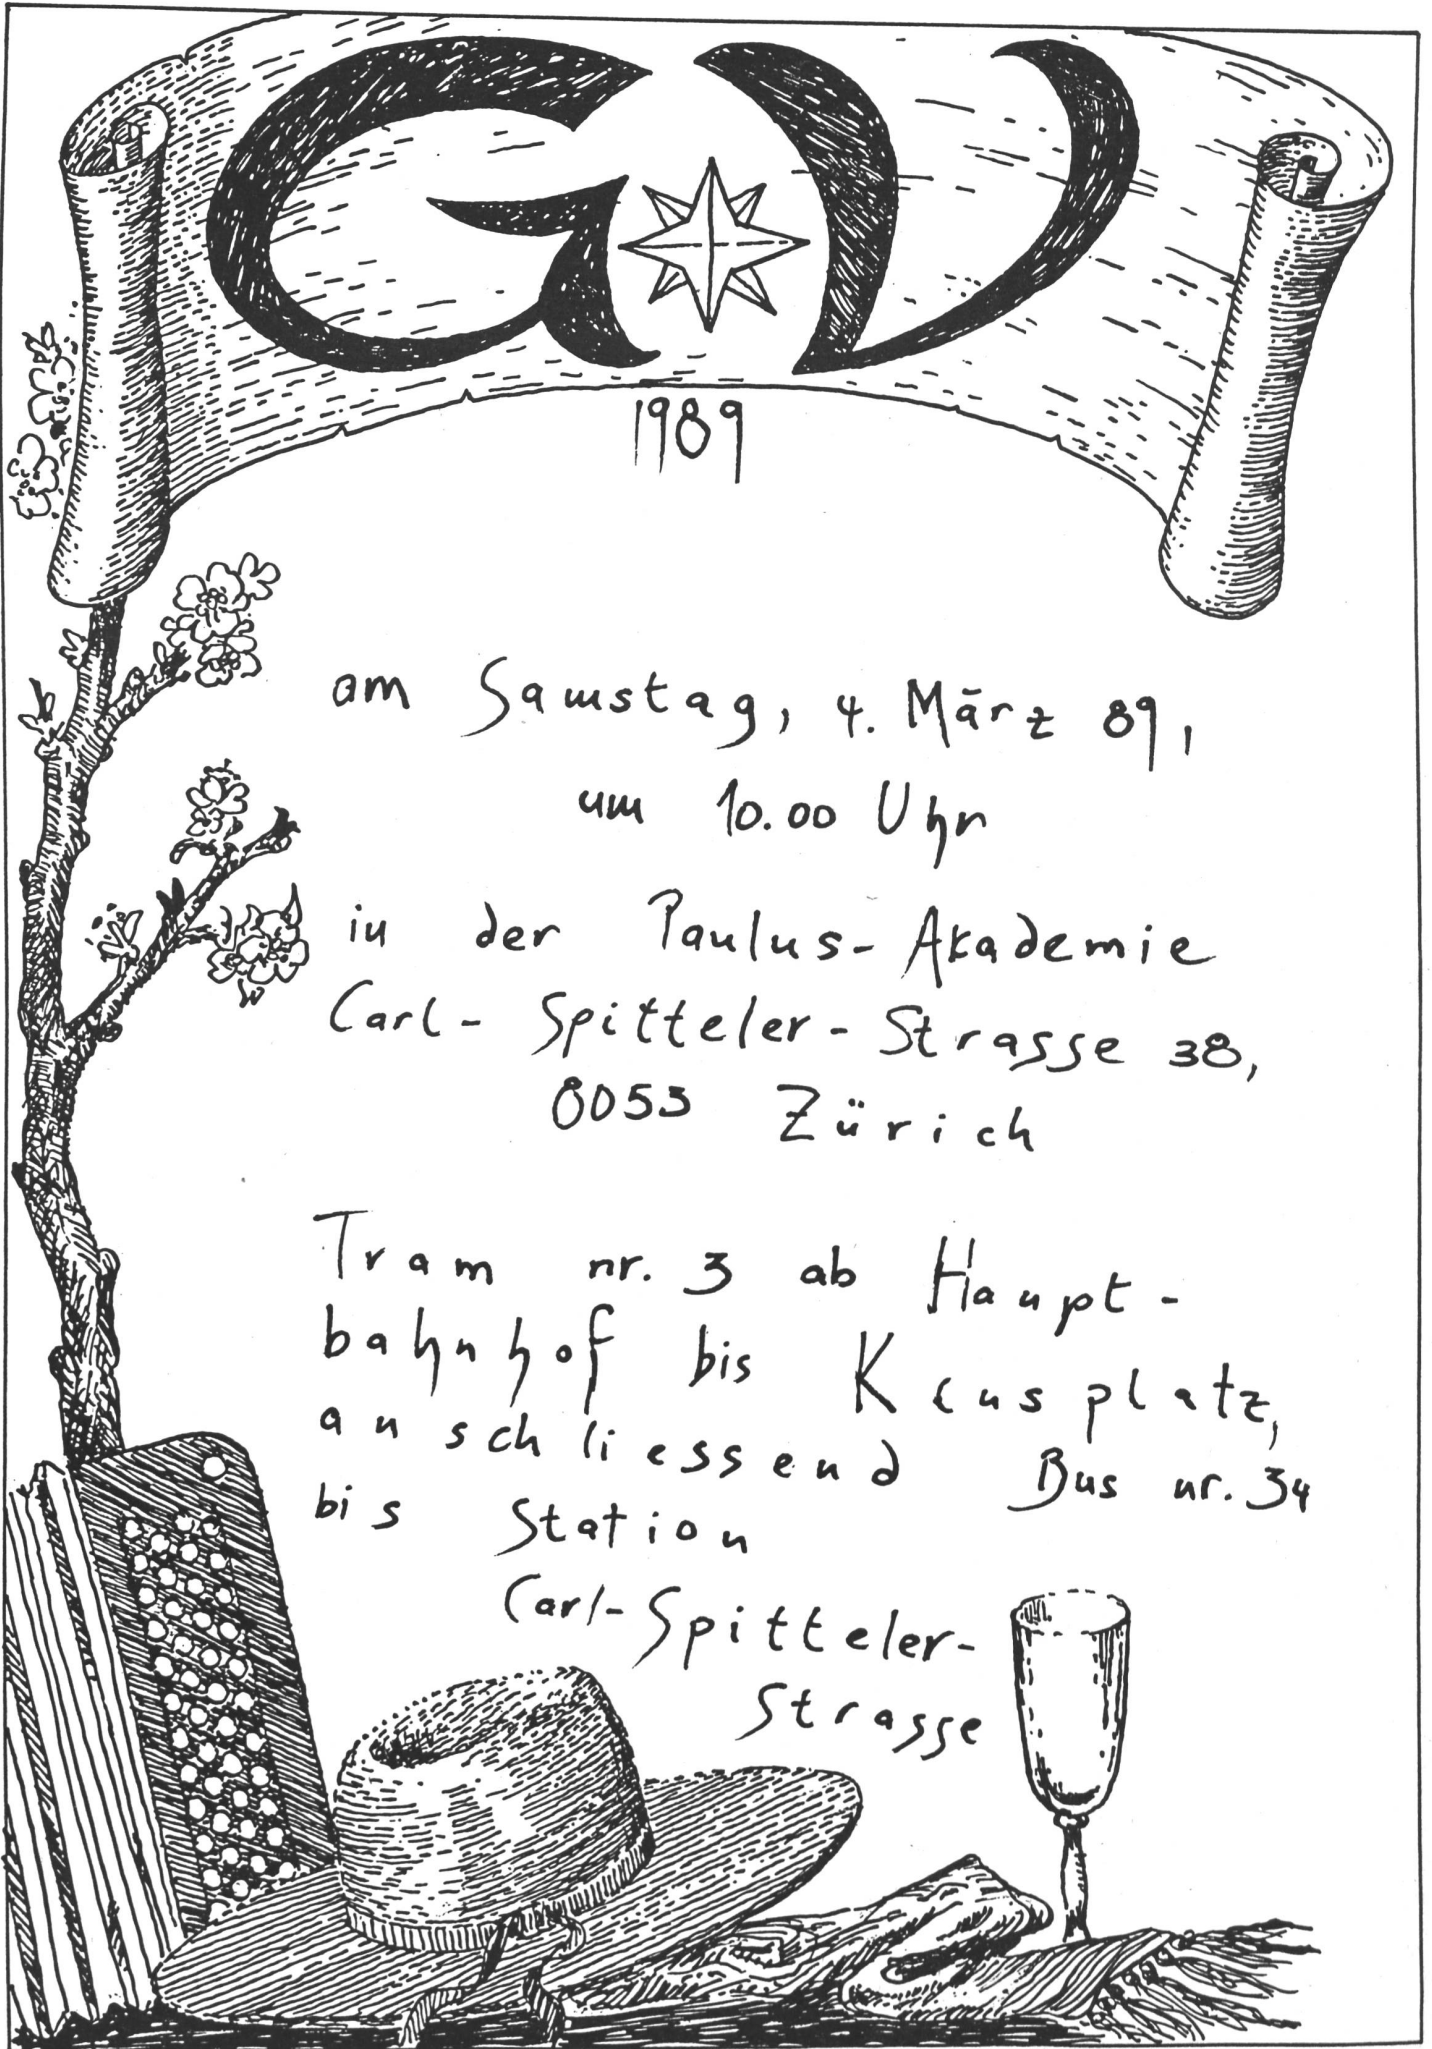 GV
1989
am Samstag, 4. März 89,
um 10.00 Uhr
in der Paulus-Akademie
Carl-Spitteler-Strasse 38,
8053 Zürich
Tram nr. 3 ab Haupt-
bahnhof bis Klusplatz,
anschliessend Bus nr. 34
bis Station
Carl-Spitteler-
Strasse